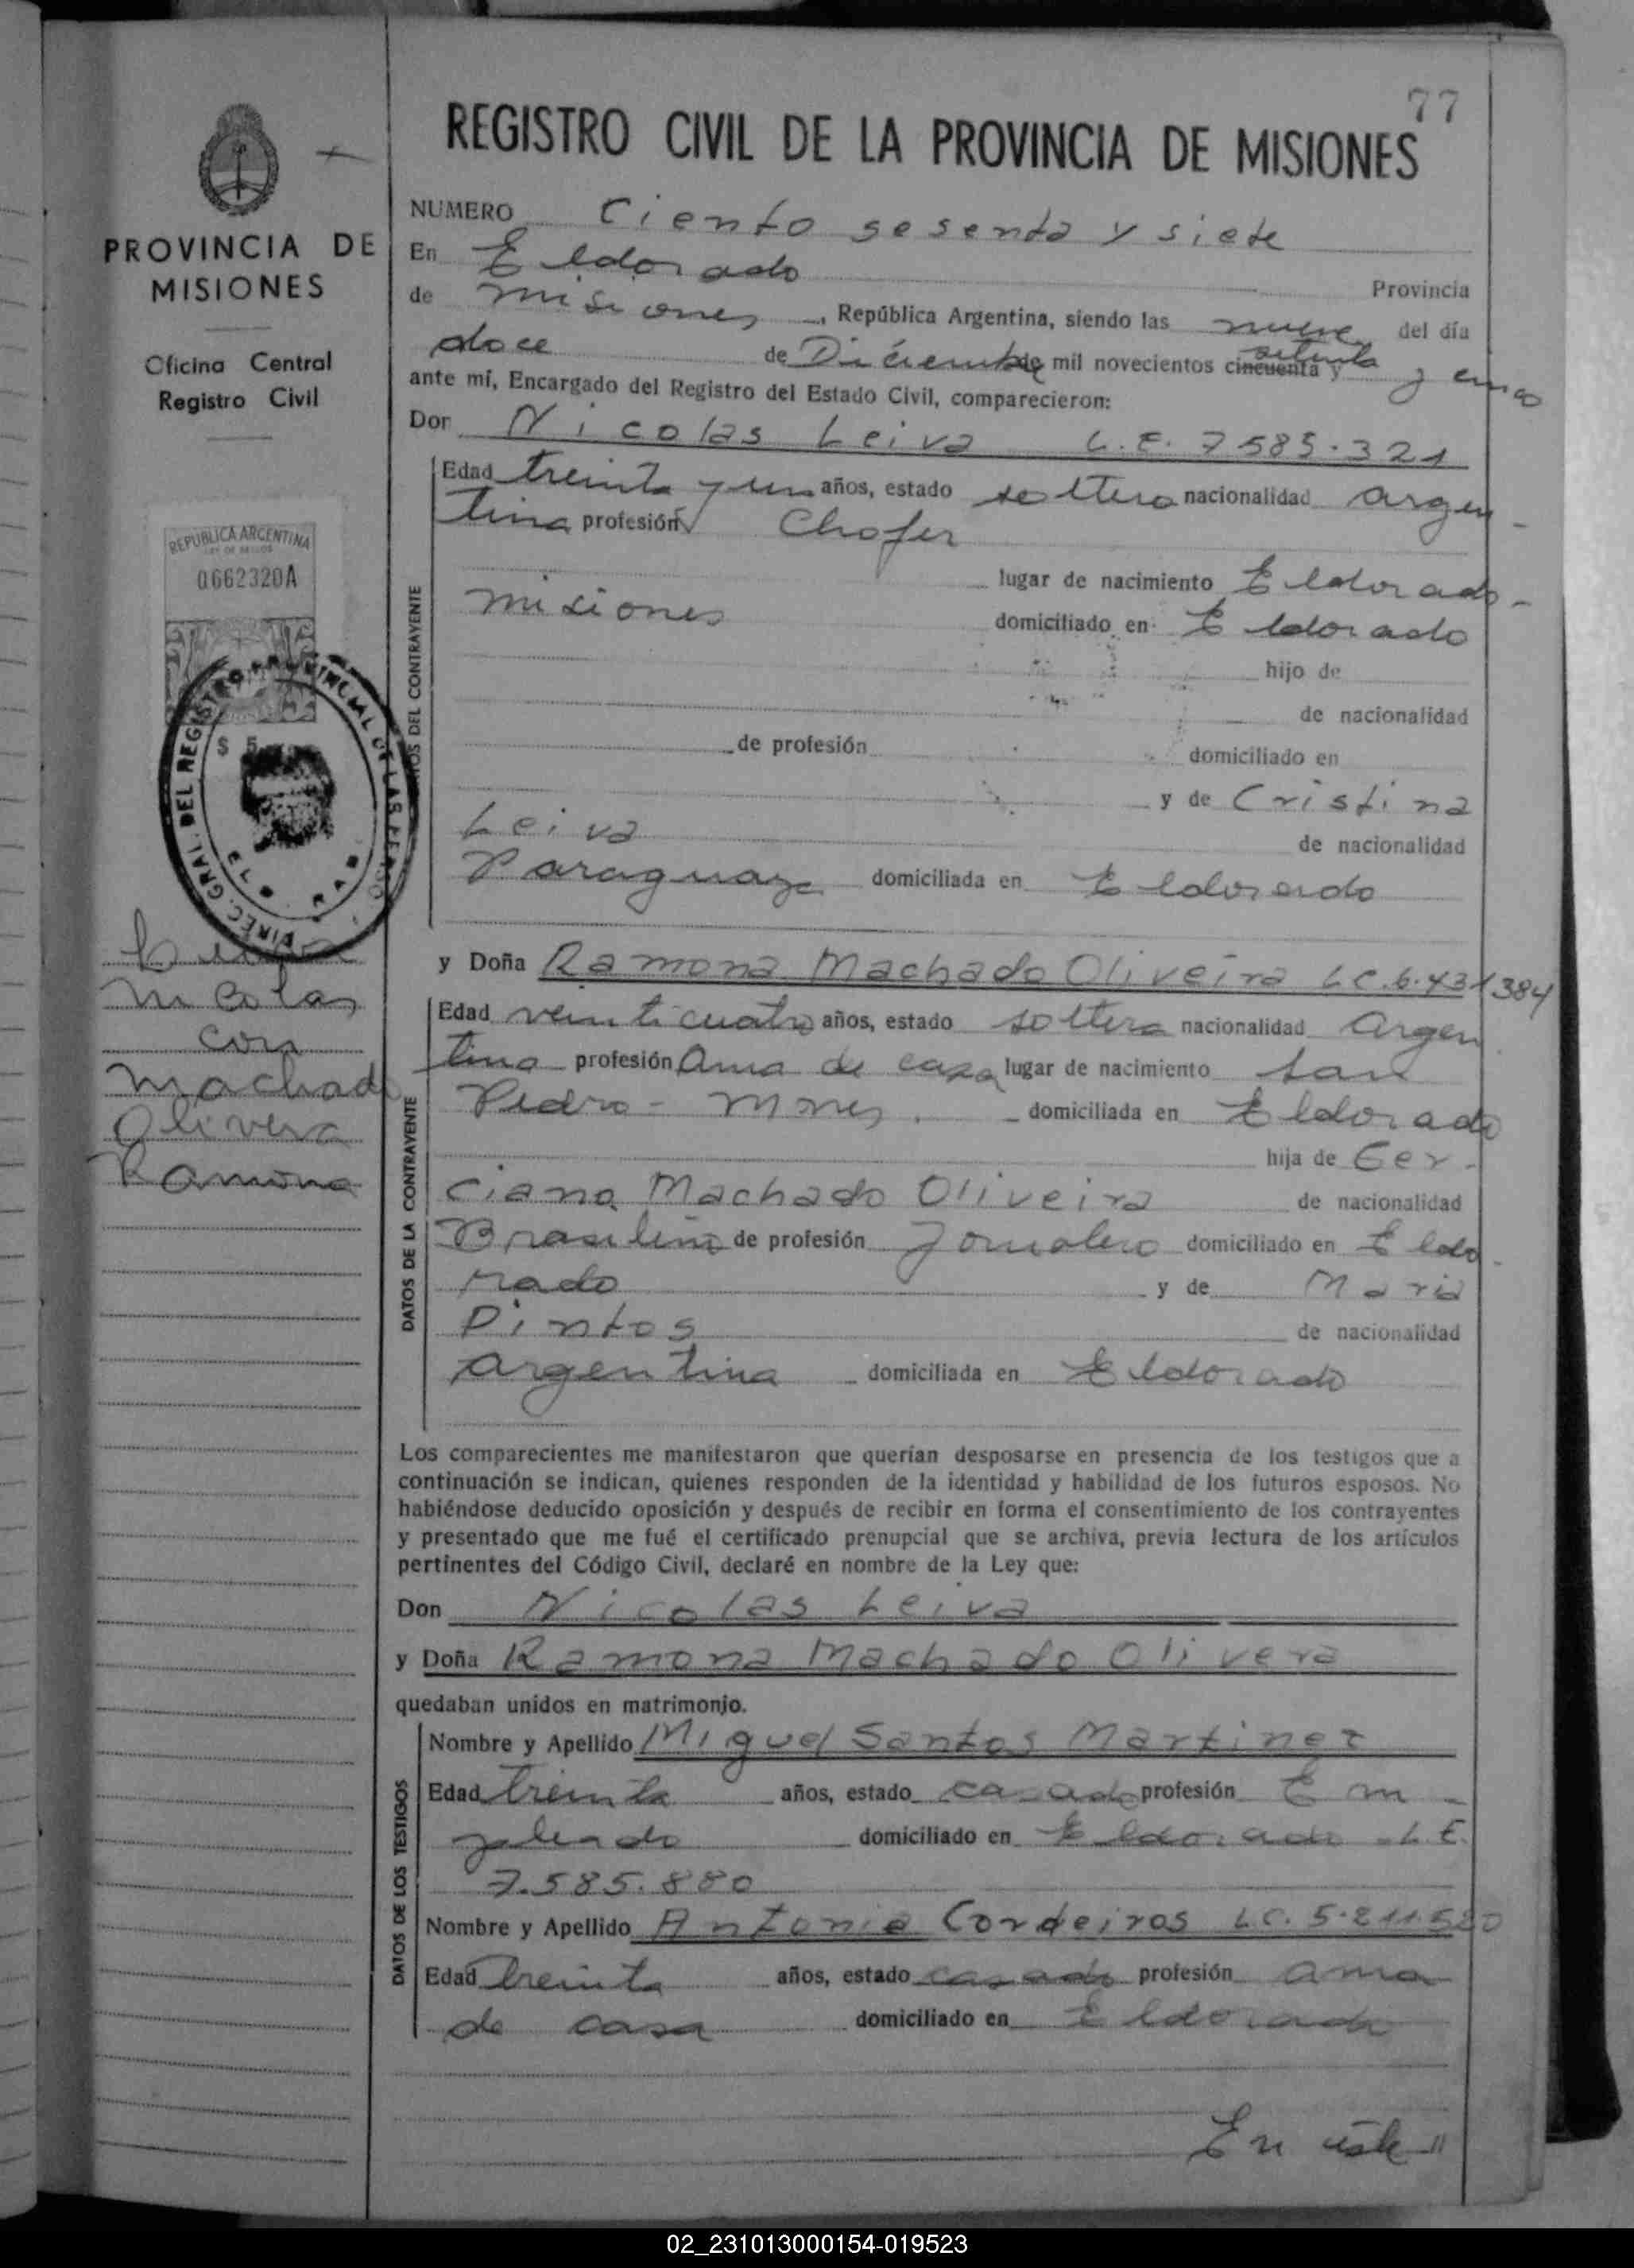 77
REGISTRO CIVIL DE LA PROVINCIA DE MISIONES
PROVINCIA DE
MISIONES
Oficina Central
Registro Civil
REPUBLICA ARGENTINA
LEY DE SELLOS
0662320A
$ 5
DIREC. GRAL. DEL REGISTRO PROVINCIAL DE LAS PERSO
Leiva
Nicolas
con
Machado
Olivera
Ramona
NUMERO Ciento sesenta y siete
En Eldorado Provincia
de Misiones, República Argentina, siendo las nueve del día
doce de Diciembre de mil novecientos cincuenta y setenta y cinco
ante mí, Encargado del Registro del Estado Civil, comparecieron:
Don Nicolas Leiva L.E. 7585.321
Edad treinta y un años, estado soltero nacionalidad argen-
tina profesión Chofer
lugar de nacimiento Eldorado-
Misiones domiciliado en Eldorado
hijo de
de nacionalidad
de profesión domiciliado en
y de Cristina
Leiva de nacionalidad
Paraguaya domiciliada en Eldorado
DATOS DEL CONTRAYENTE
y Doña Ramona Machado Oliveira L.C. 6.431384
Edad veinticuatro años, estado soltera nacionalidad argen
tina profesión Ama de casa lugar de nacimiento San
Pedro - Mnes. domiciliada en Eldorado
hija de Ger-
ciano Machado Oliveira de nacionalidad
Brasileña de profesión Jornalero domiciliado en Eldo
rado y de Maria
Pintos de nacionalidad
argentina domiciliada en Eldorado
DATOS DE LA CONTRAYENTE
Los comparecientes me manifestaron que querían desposarse en presencia de los testigos que a
continuación se indican, quienes responden de la identidad y habilidad de los futuros esposos. No
habiéndose deducido oposición y después de recibir en forma el consentimiento de los contrayentes
y presentado que me fué el certificado prenupcial que se archiva, previa lectura de los artículos
pertinentes del Código Civil, declaré en nombre de la Ley que:
Don Nicolas Leiva
y Doña Ramona Machado Olivera
quedaban unidos en matrimonio.
Nombre y Apellido Miguel Santos Martinez
Edad treinta años, estado casado profesión Em-
pleado domiciliado en Eldorado - L.E.
7.585.880
Nombre y Apellido Antonia Cordeiros L.C. 5.211.520
Edad treinta años, estado casada profesión ama
de casa domiciliado en Eldorado
DATOS DE LOS TESTIGOS
En este //
02_231013000154-019523